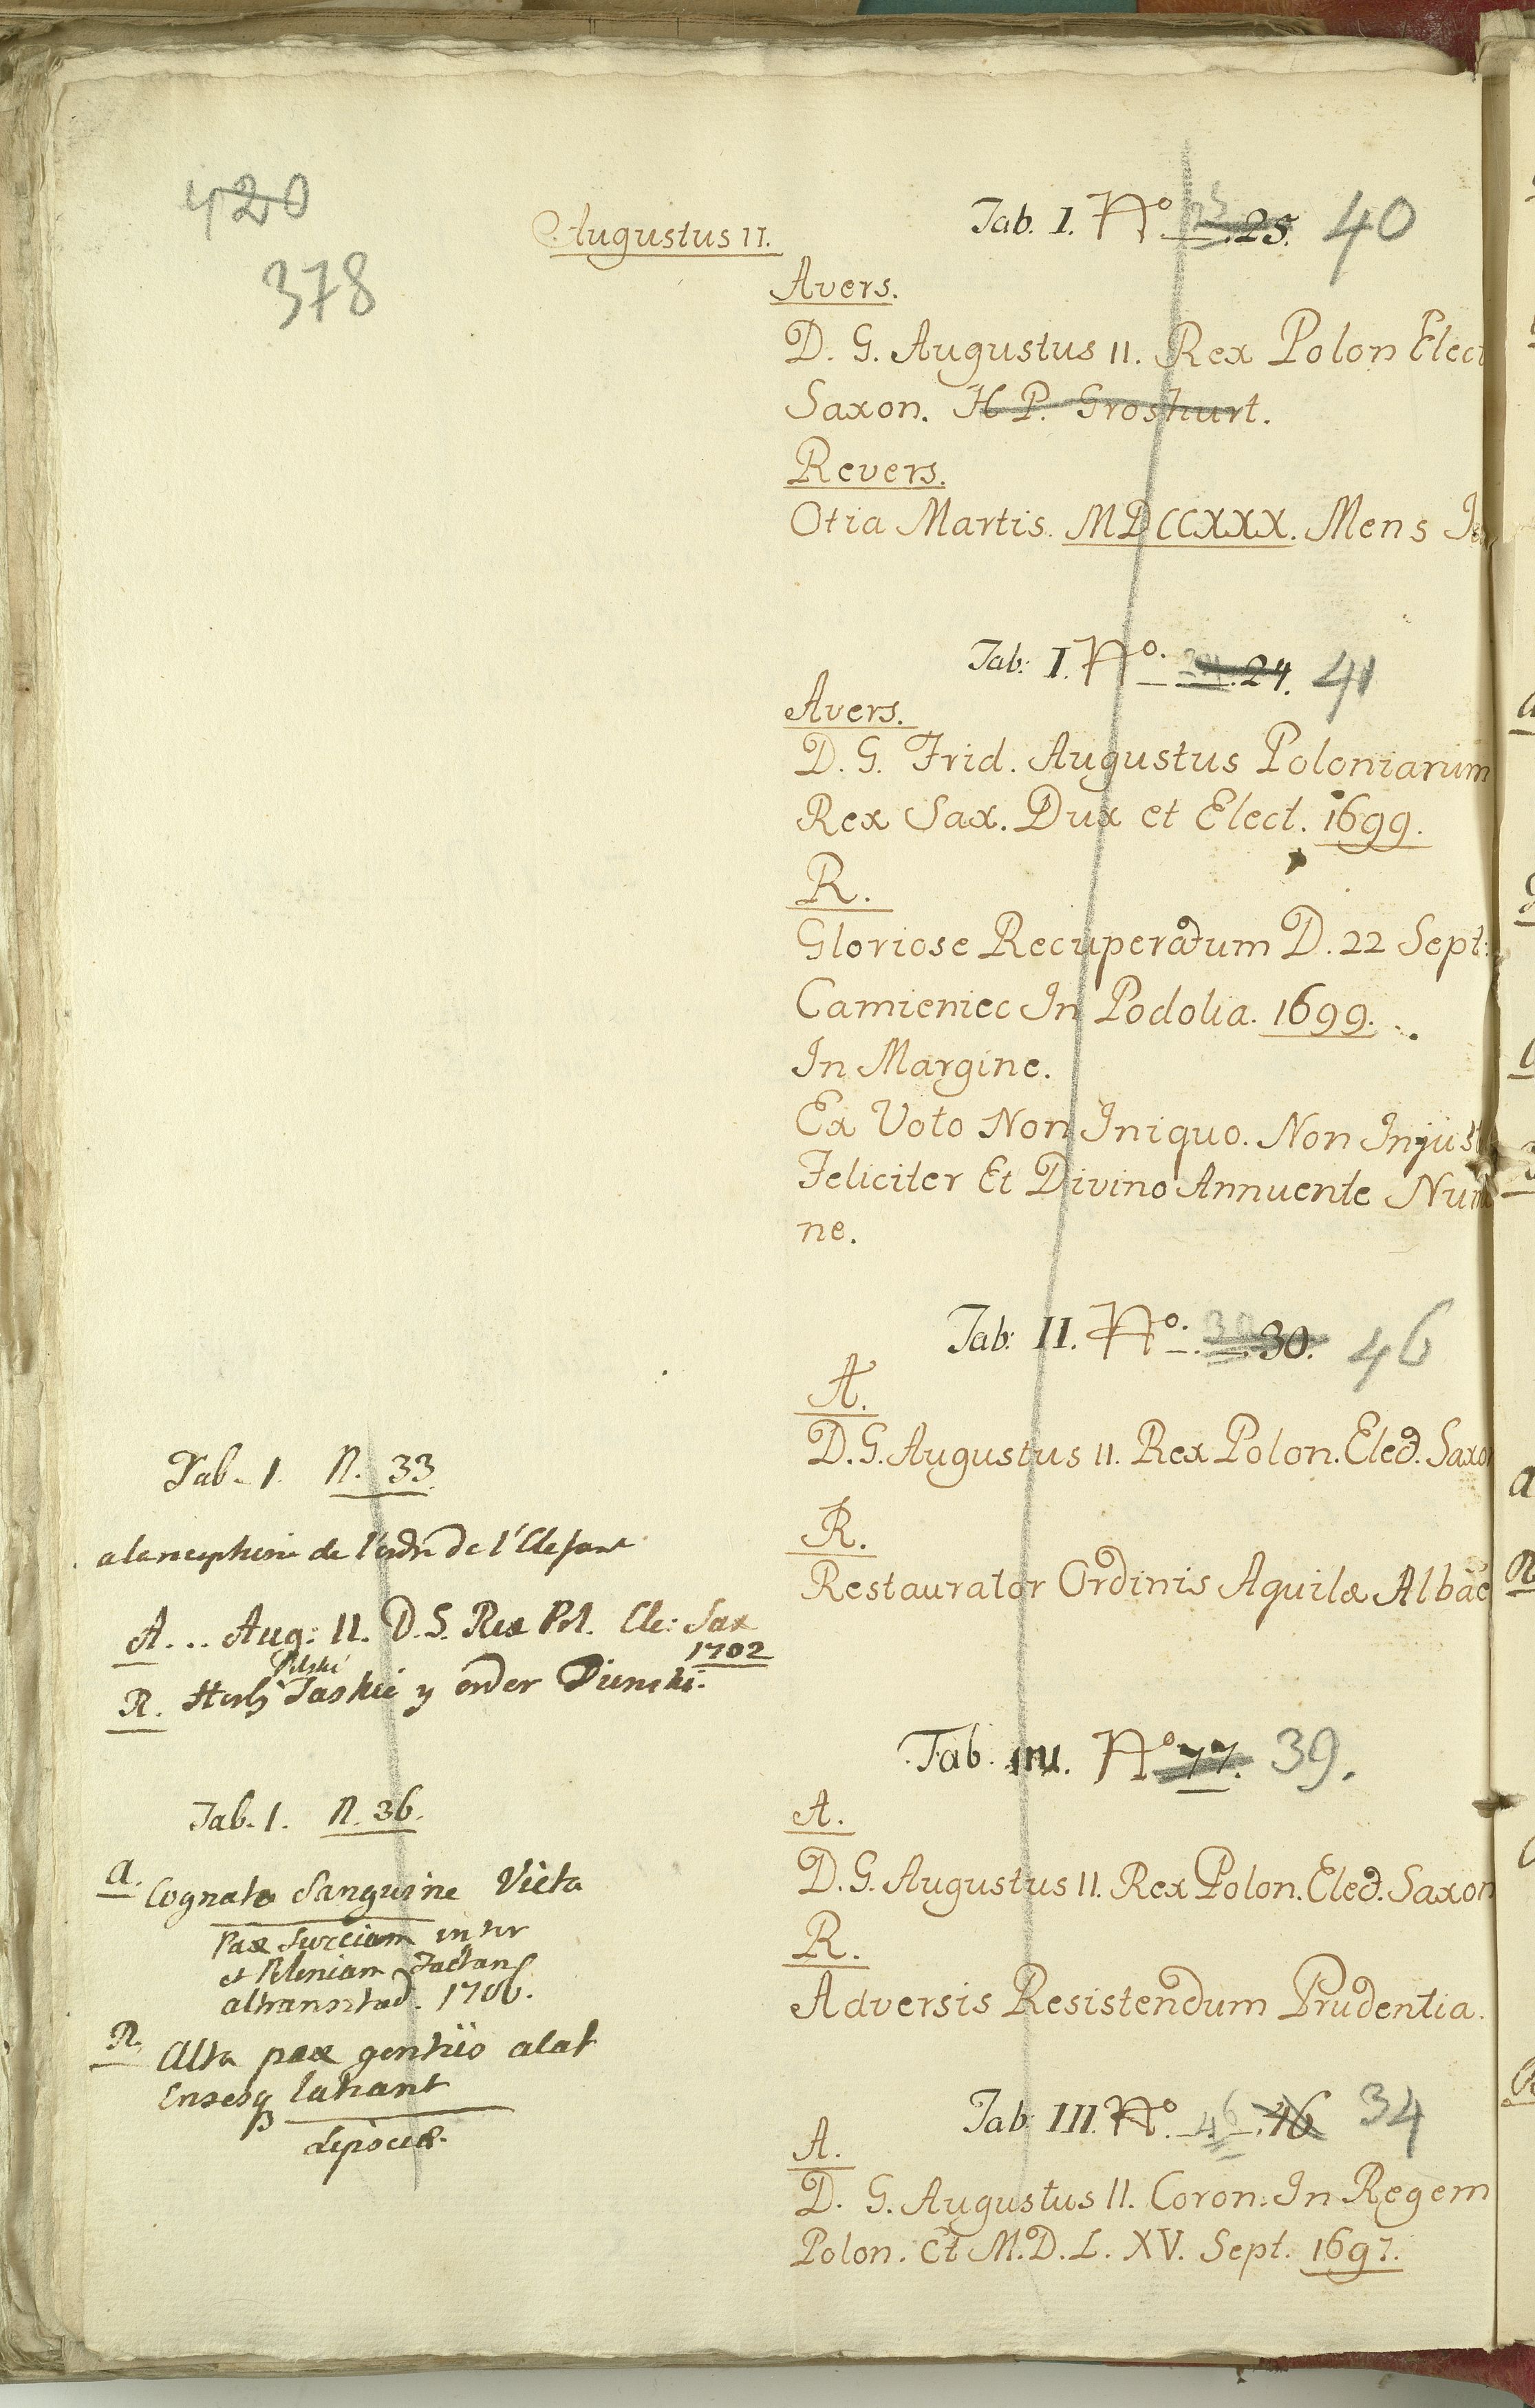 420
378
Augustus II.
Tab. I. No 25. 40
Avers.
D. G. Augustus II. Rex Polon Elect
Saxon. H P. Groskurt.
Revers.
Otia Martis. MDCCXXX. Mens
Tab: I. No. 24. 41
Avers.
D. G. Frid. Augustus Poloniarum
Rex Sax. Dux et Elect. 1699.
R.
Gloriose Recuperatum D. 22 Sept:
Camieniec In Podolia. 1699.
In Margine.
Ex Voto Non Iniquo. Non Injust
Feliciter Et Divino Annuente Numi
ne.
Tab: II. No. 30 30. 46
A.
D. G. Augustus II. Rex Polon. Elect. Saxon
R.
Restaurator Ordinis Aquilæ Albae
Tab. No 77. 39.
A.
D. G. Augustus II. Rex Polon. Elect. Saxon
R.
Adversis Resistendum Prudentia.
Tab: III. No. 46 46 34
A.
D. G. Augustus II. Coron. In Regem
Polon. Et M. D. L. XV. Sept. 1697.
Tab. 1. N. 33.
de l'ordre de l'Elefant
A... Aug: II. D. G. Rex Pol. Ele: Sax
1702
R. Herb Polski Saskie y order Dunski.
Tab. 1. N. 36.
A. Cognato Sanguine Victa
Pax Sueciam inter
et Poloniam Factam
altranstad. 1706.
R. Alta pax gentes alat
Ensesq lateant